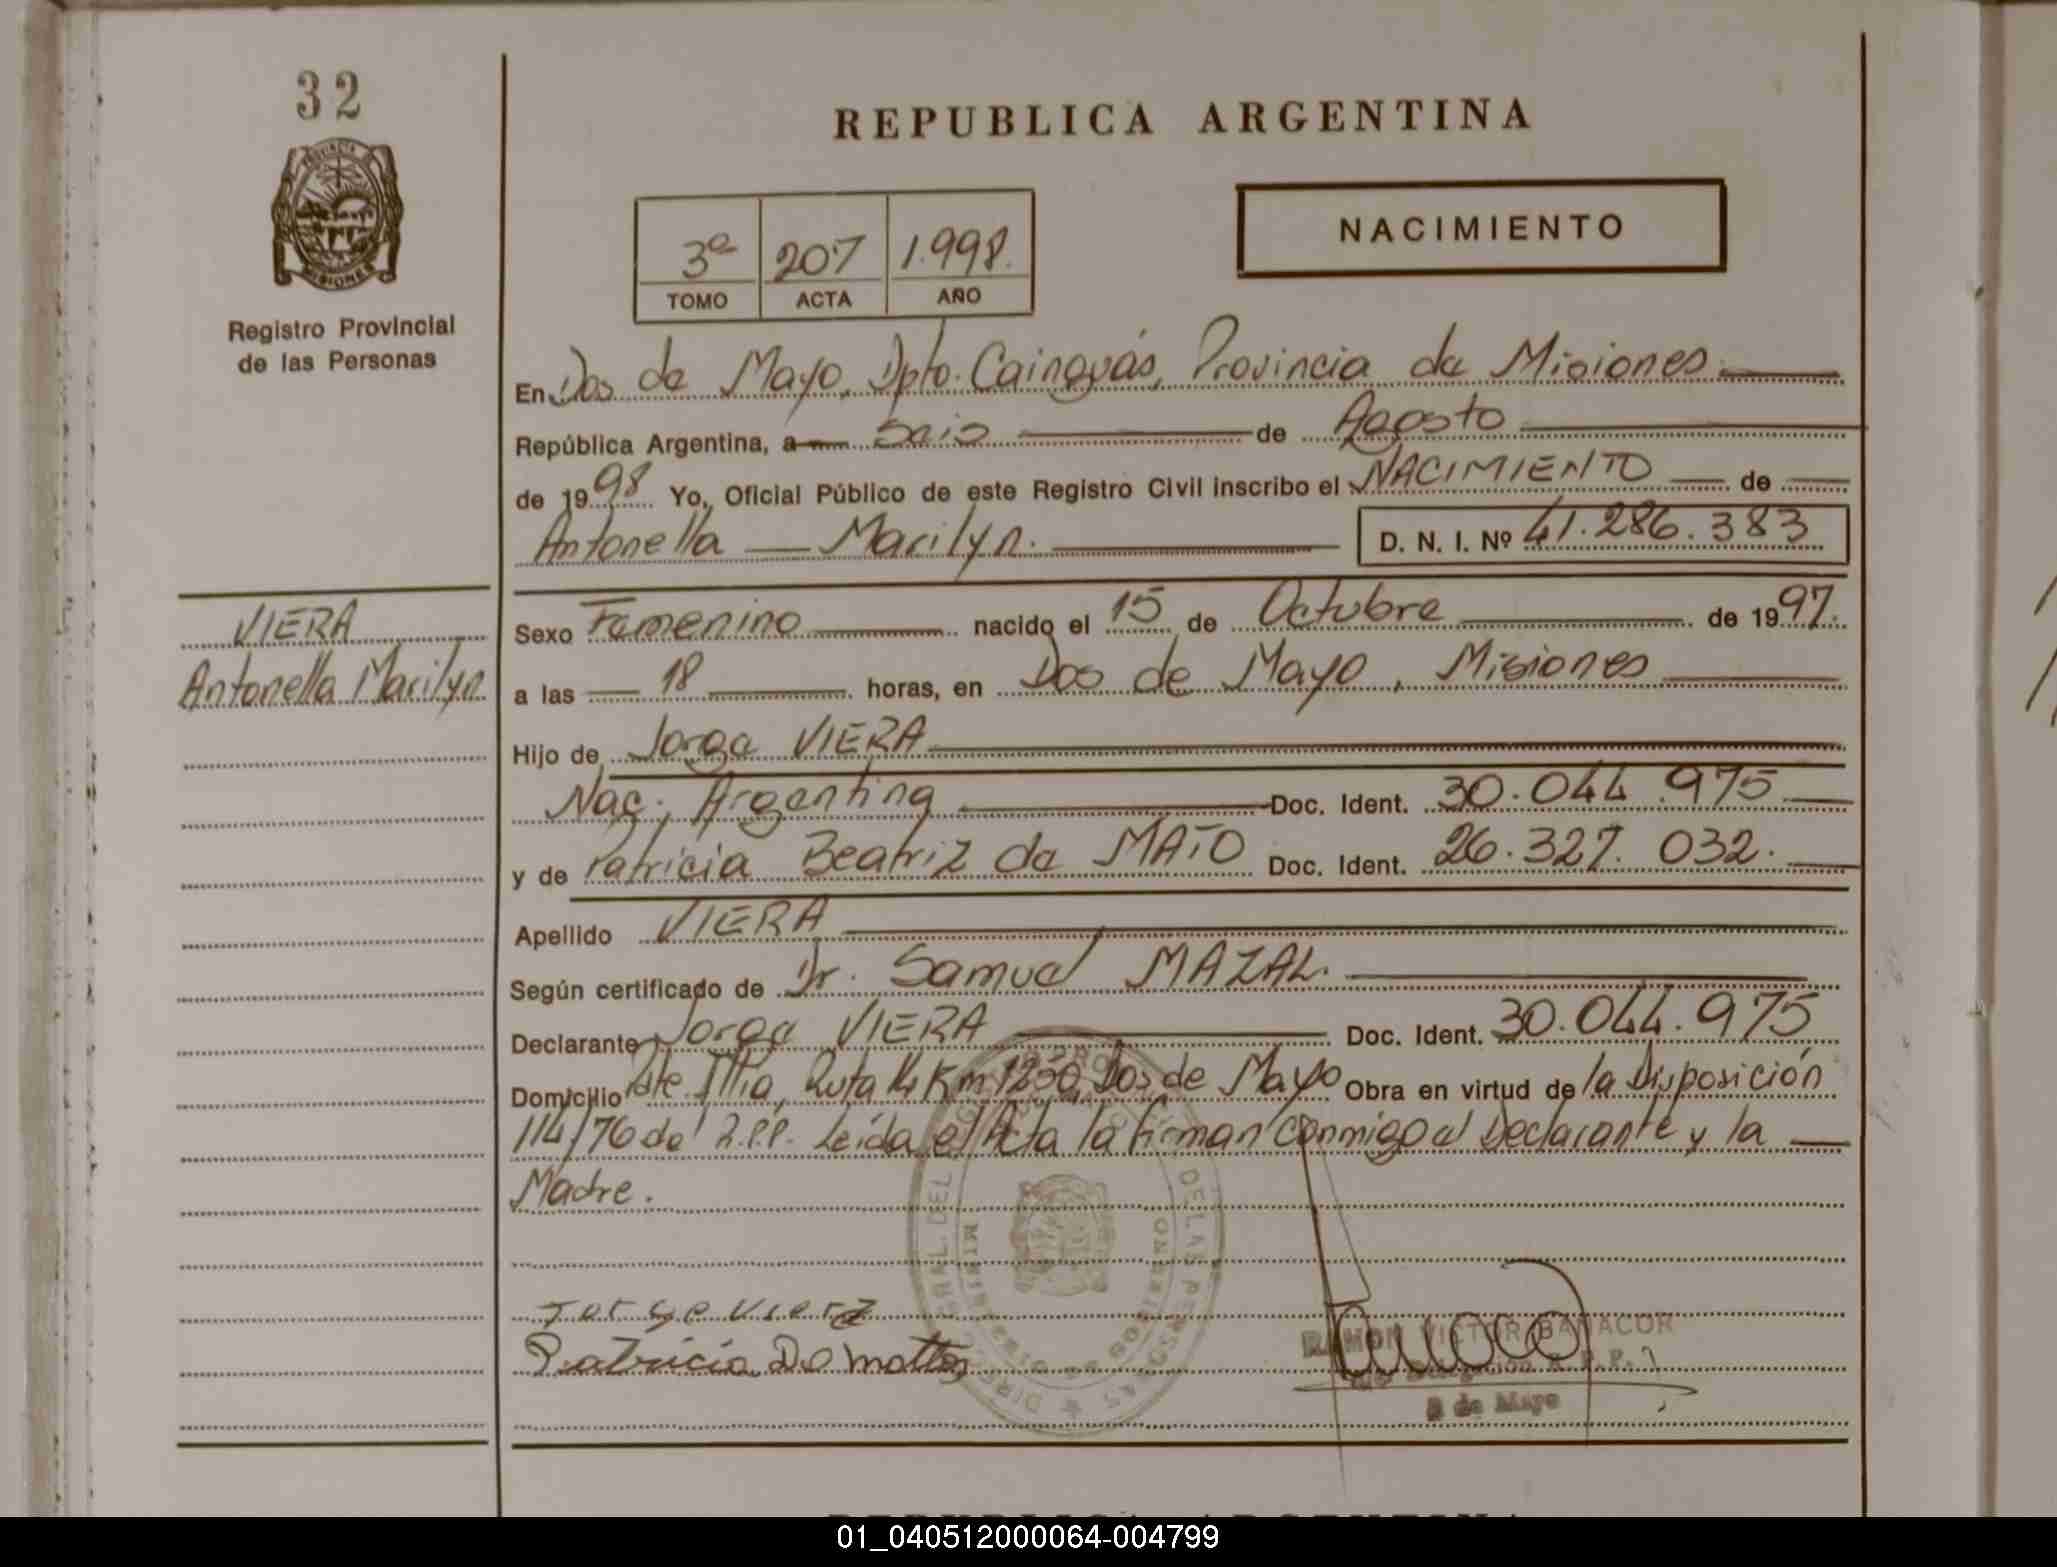 32
REPUBLICA ARGENTINA
NACIMIENTO
3º 207 1.998.
TOMO ACTA AÑO
PROVINCIA
MISIONES
Registro Provincial
de las Personas
En Dos de Mayo, Dpto. Cainguás, Provincia de Misiones.
República Argentina, a Seis de Agosto
de 1998 Yo, Oficial Público de este Registro Civil inscribo el NACIMIENTO de
Antonella Marilyn. D. N. I. Nº 41.286.383
VIERA
Antonella Marilyn
Sexo Femenino nacido el 15 de Octubre de 1997.
a las 18 horas, en Dos de Mayo, Misiones
Hijo de Jorge VIERA
Nac. Argentina Doc. Ident. 30.044.975
y de Patricia Beatriz de MATO Doc. Ident. 26.327.032.
Apellido VIERA
Según certificado de Dr. Samuel MAZAL.
Declarante Jorge VIERA Doc. Ident. 30.044.975
Domicilio Pte. Illia, Ruta 14 Km 1250, Dos de Mayo Obra en virtud de la Disposición
114/76 del R.P.P. Leída el Acta la firman conmigo el Declarante y la
Madre.
Jorge Viera
Patricia De mattos
RAMON VICTOR BAMACOR
2 de Mayo
01_040512000064-004799